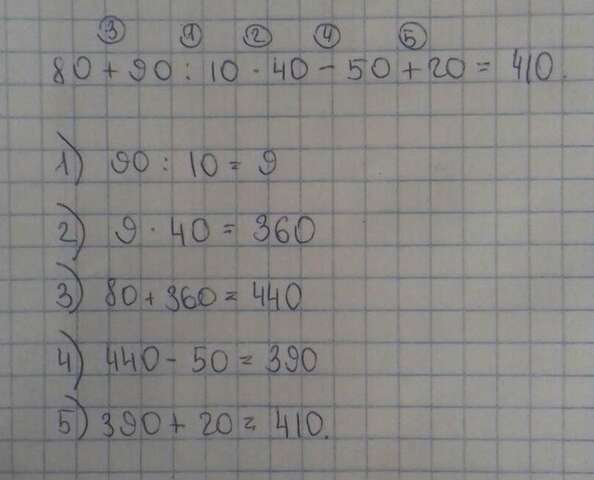 3 1 2 4 5
80 + 90 : 10 · 40 - 50 + 20 = 410.
1) 90 : 10 = 9
2) 9 · 40 = 360
3) 80 + 360 = 440
4) 440 - 50 = 390
5) 390 + 20 = 410.